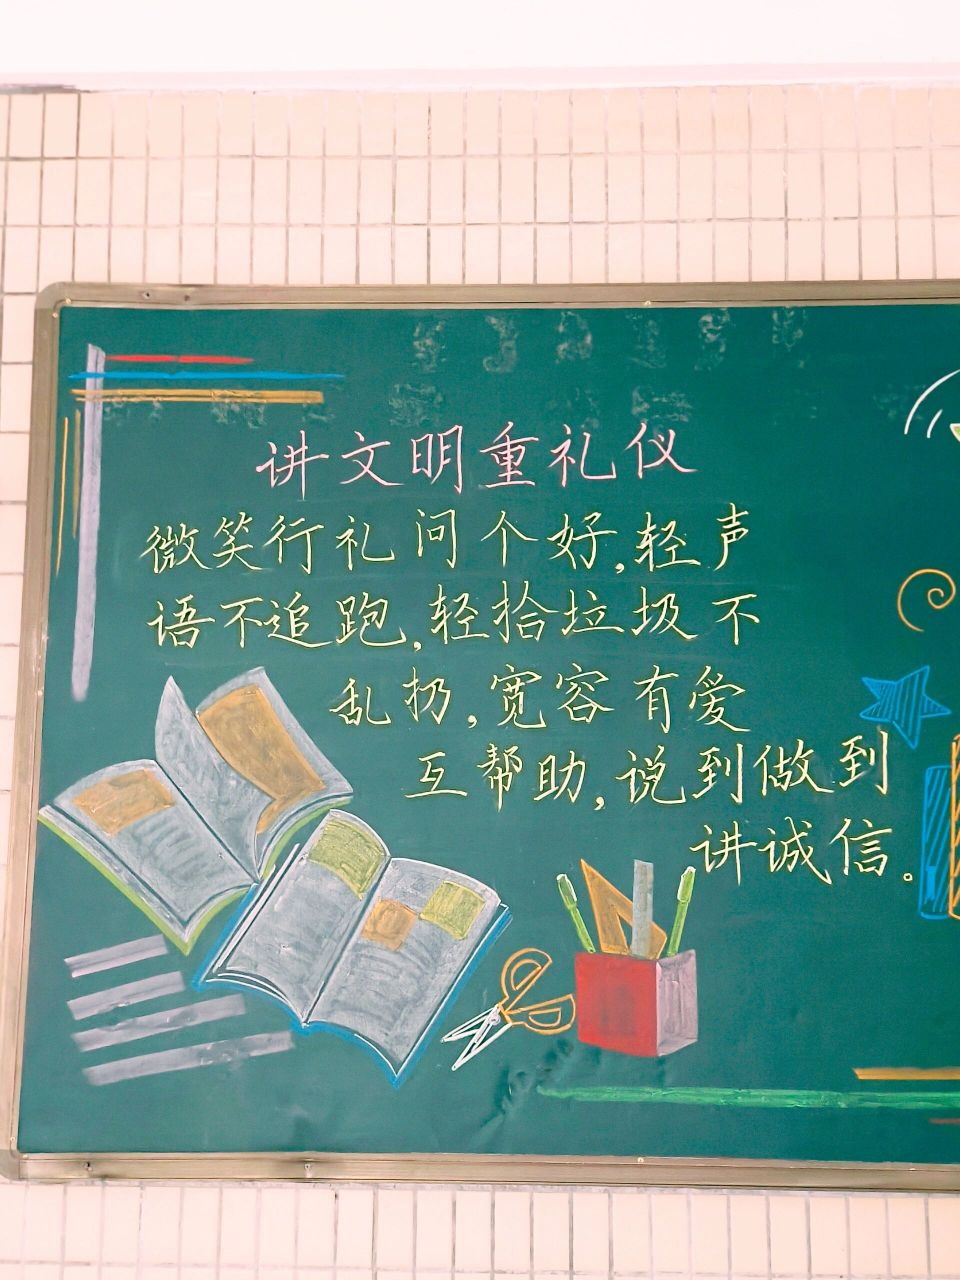 讲文明重礼仪
微笑行礼问个好,轻声
语不追跑,轻拾垃圾不
乱扔,宽容有爱
互帮助,说到做到
讲诚信。